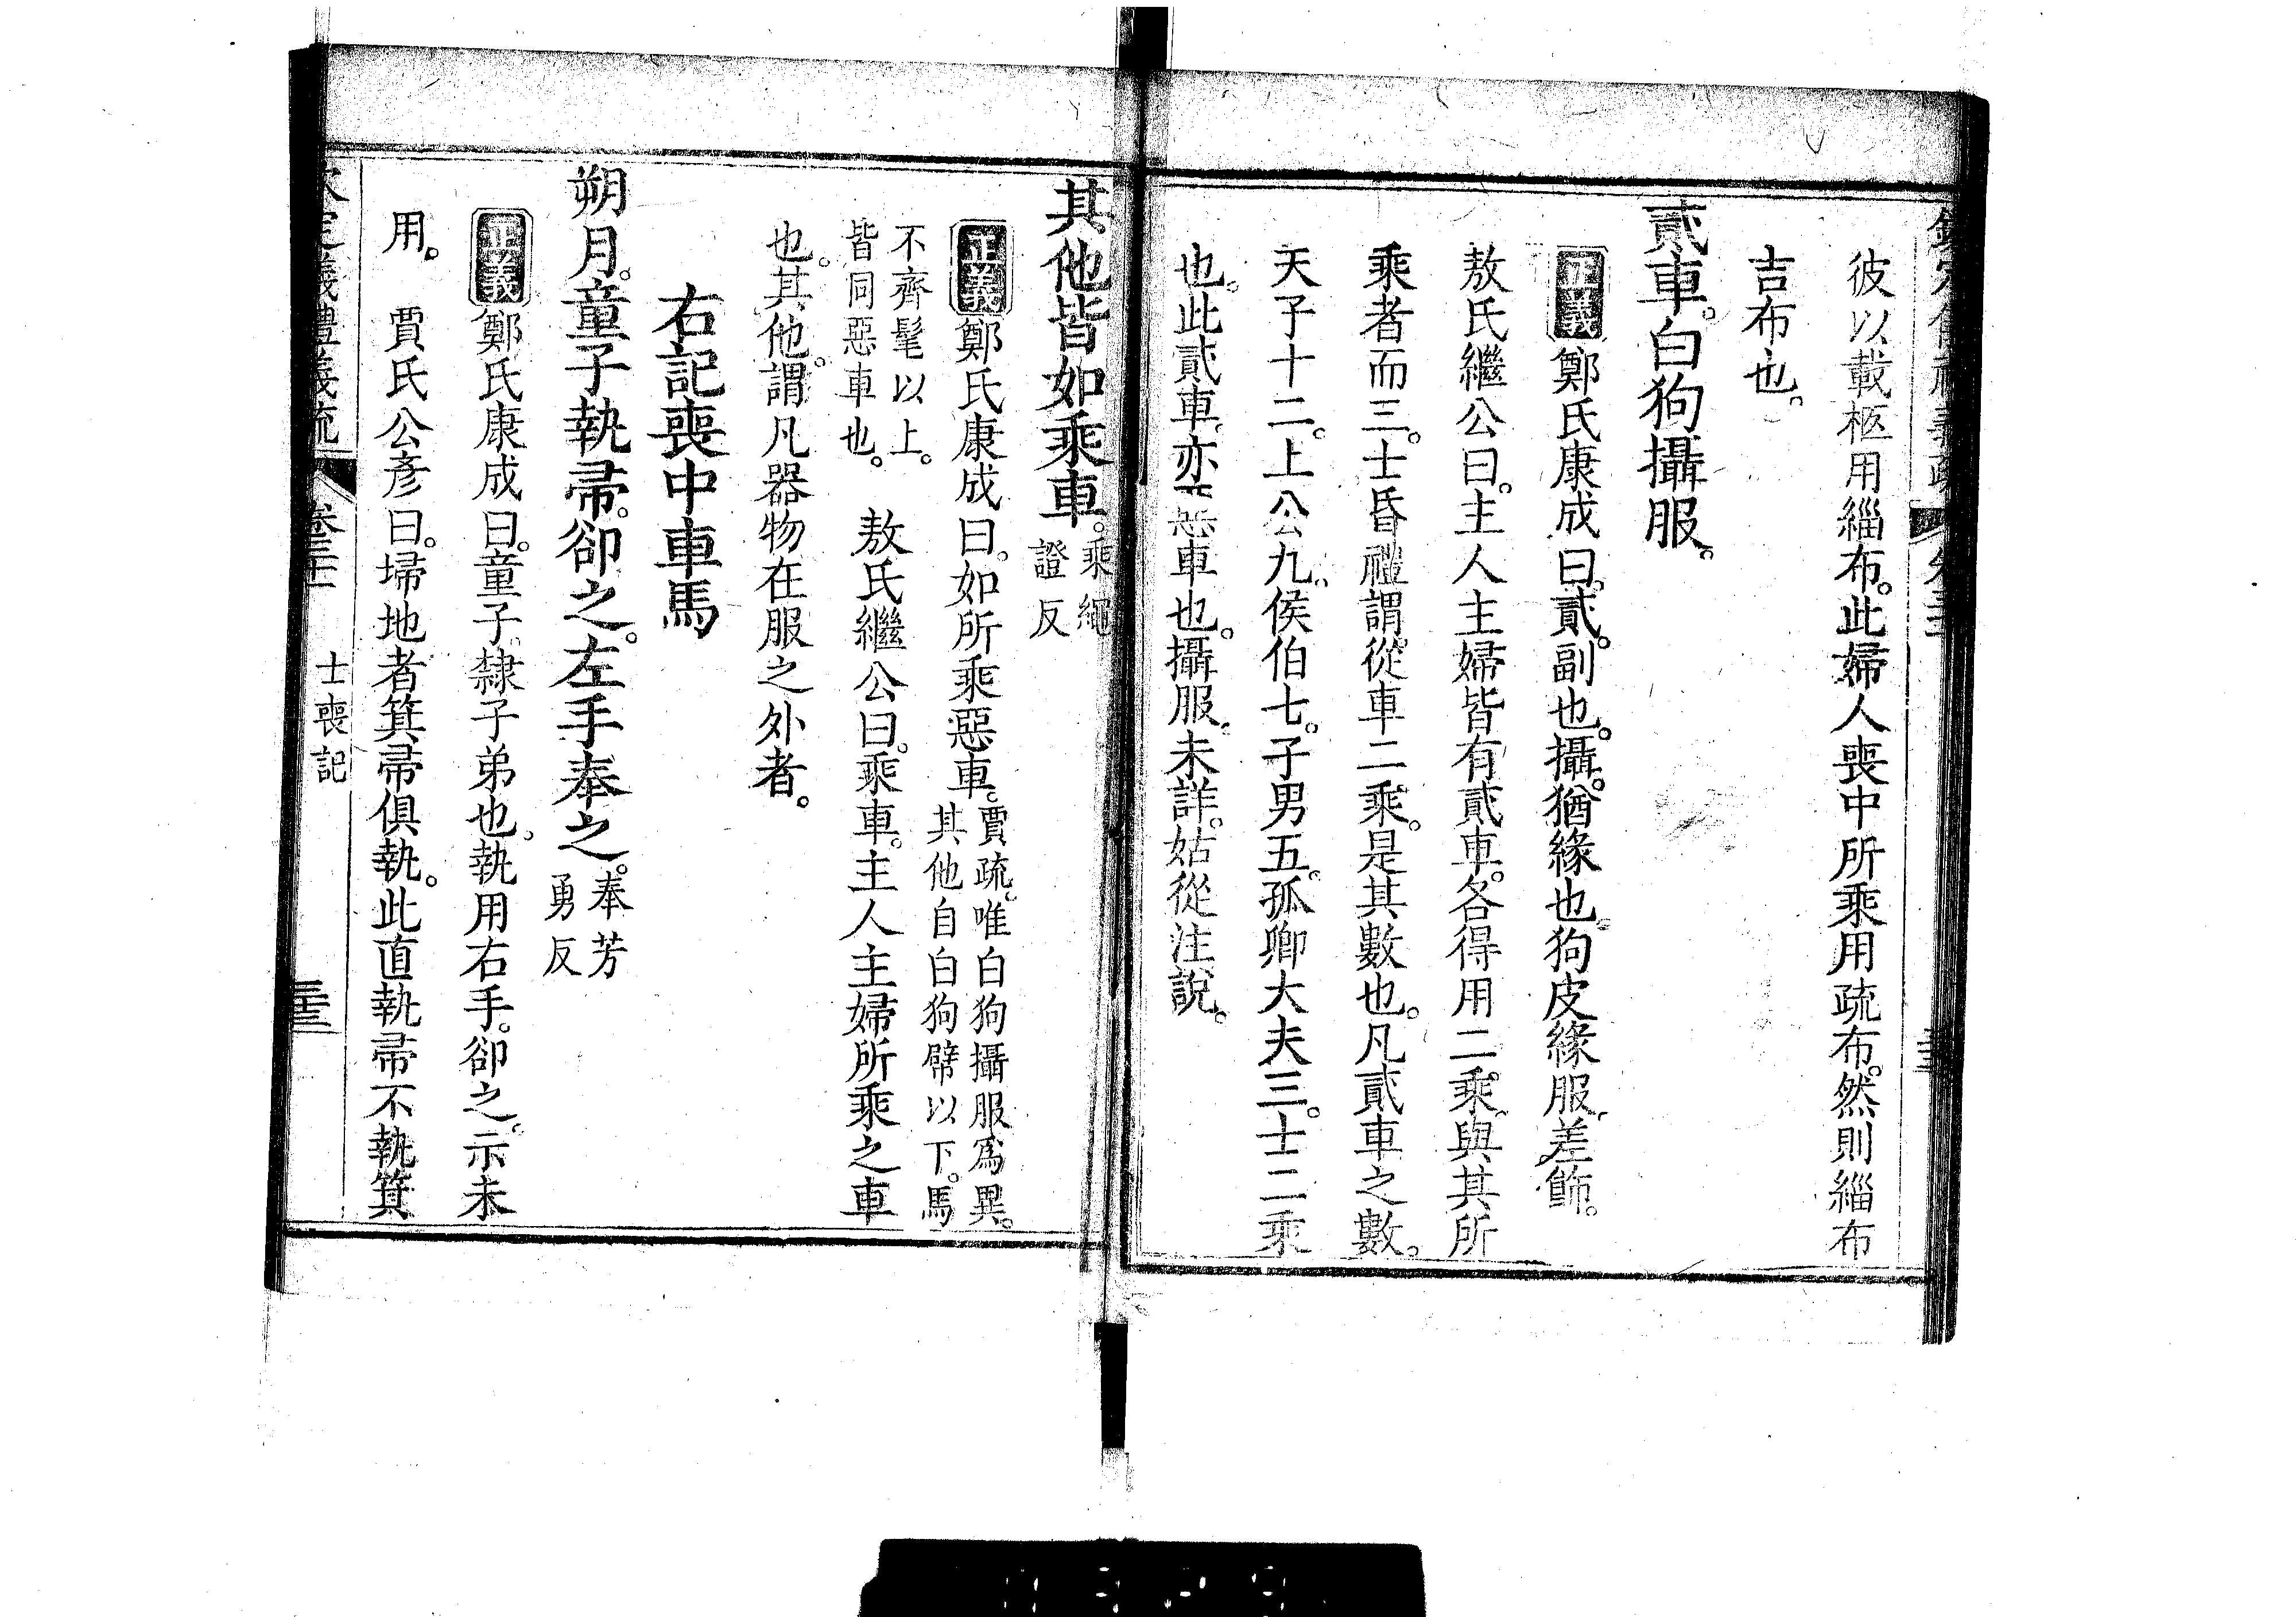 彼以載柩用緇布。此婦人喪中所乘用疏布。然則緇布
吉布也。
貳車。白狗攝服。
正義鄭氏康成曰。貳。副也。攝。猶緣也。狗皮緣服。差飾。
敖氏繼公曰。主人主婦皆有貳車。各得用二乘。與其所
乘者而三。士昏禮謂。從車二乘。是其數也。凡貳車之數。
天子十二。上公九。侯伯七。子男五。孤卿大夫三。士二乘
也。此貳車。亦惡車也。攝服。未詳。姑從注說。
其他皆如乘車。乘繩
證反
正義鄭氏康成曰。如所乘惡車。賈疏。唯白狗攝服爲異。
其他自白狗幦以下。馬
不齊髦以上。
皆同惡車也。敖氏繼公曰。乘車。主人主婦所乘之車
也。其他。謂凡器物在服之外者。
右記喪中車馬
朔月。童子執帚。卻之。左手奉之。奉芳
勇反
正義鄭氏康成曰。童子。隸子弟也。執用右手。卻之。示未
用。賈氏公彥曰。埽地者箕帚俱執。此直執帚不執箕
欽定儀禮義疏 卷三十一 士喪記 三十三